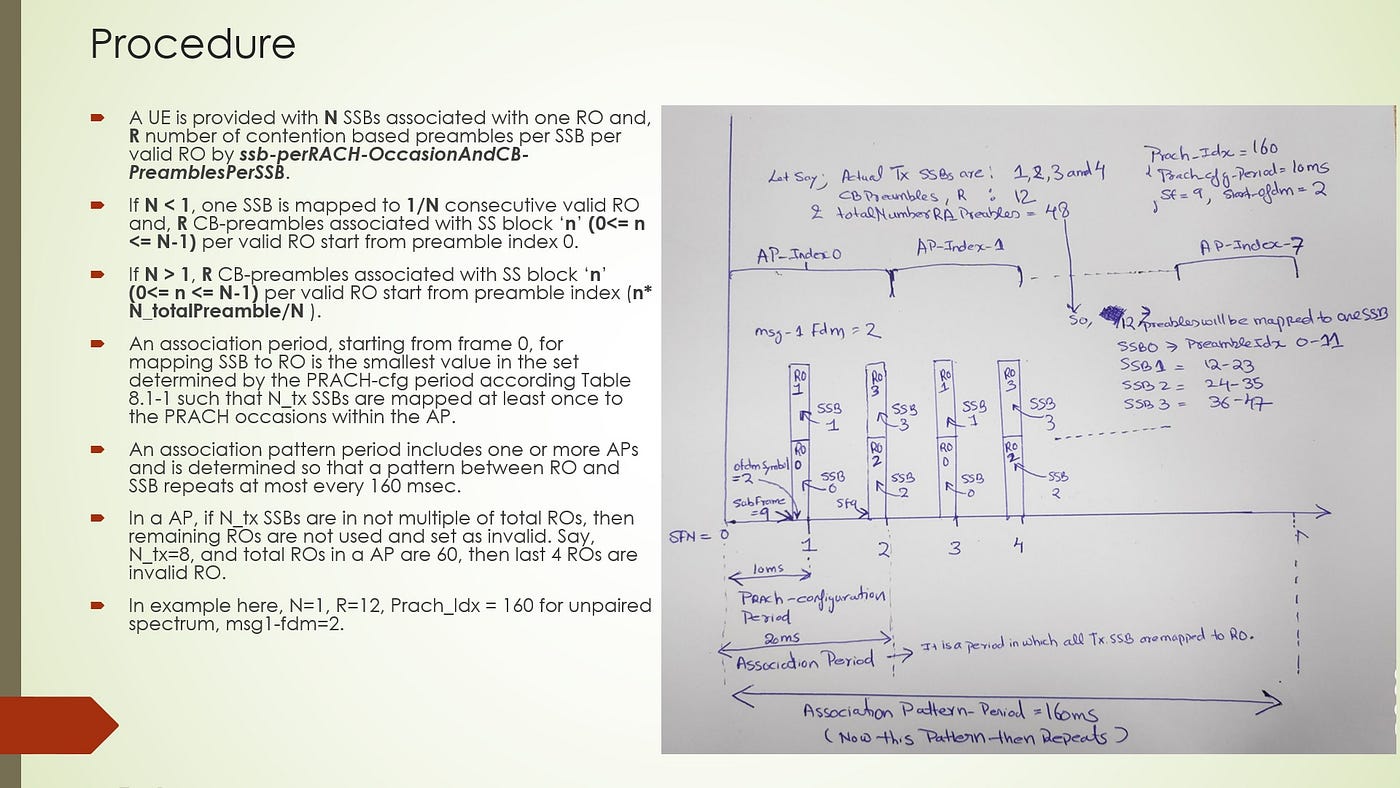 Procedure
A UE is provided with N SSBs associated with one RO and,
R number of contention based preambles per SSB per
valid RO by ssb-perRACH-OccasionAndCB-
PreamblesPerSSB.
If N < 1, one SSB is mapped to 1/N consecutive valid RO
and, R CB-preambles associated with SS block ‘n’ (0<= n
<= N-1) per valid RO start from preamble index 0.
If N > 1, R CB-preambles associated with SS block ‘n’
(0<= n <= N-1) per valid RO start from preamble index (n*
N_totalPreamble/N ).
An association period, starting from frame 0, for
mapping SSB to RO is the smallest value in the set
determined by the PRACH-cfg period according Table
8.1-1 such that N_tx SSBs are mapped at least once to
the PRACH occasions within the AP.
An association pattern period includes one or more APs
and is determined so that a pattern between RO and
SSB repeats at most every 160 msec.
In a AP, if N_tx SSBs are in not multiple of total ROs, then
remaining ROs are not used and set as invalid. Say,
N_tx=8, and total ROs in a AP are 60, then last 4 ROs are
invalid RO.
In example here, N=1, R=12, Prach_Idx = 160 for unpaired
spectrum, msg1-fdm=2.
Let Say; Actual Tx SSBs are : 1,2,3 and 4
CB Preambles, R : 12
& totalNumberRA Preables = 48
Prach_Idx = 160
& Prach cfg-Period = 10ms
, Sf = 9, Start-ofdm = 2
AP-Index 0
AP-Index-1
AP-Index-7
So, 12 preables will be mapped to one SSB
SSB0 → Preamble Idx 0-11
SSB 1 = 12-23
SSB 2 = 24-35
SSB 3 = 36-47
msg-1 Fdm = 2
RO 1
RO 3
RO 1
RO 3
SSB 1
SSB 3
SSB 1
SSB 3
RO 0
RO 2
RO 0
RO 2
SSB 0
SSB 2
SSB 0
SSB 2
ofdm Symbol
=2
SubFrame
=9
Sf9
SFN = 0
1
2
3
4
10ms
PRACH-configuration
Period
20ms
Association Period → It is a period in which all Tx. SSB are mapped to RO.
Association Pattern-Period = 160ms
( Now this Pattern then Repeats )